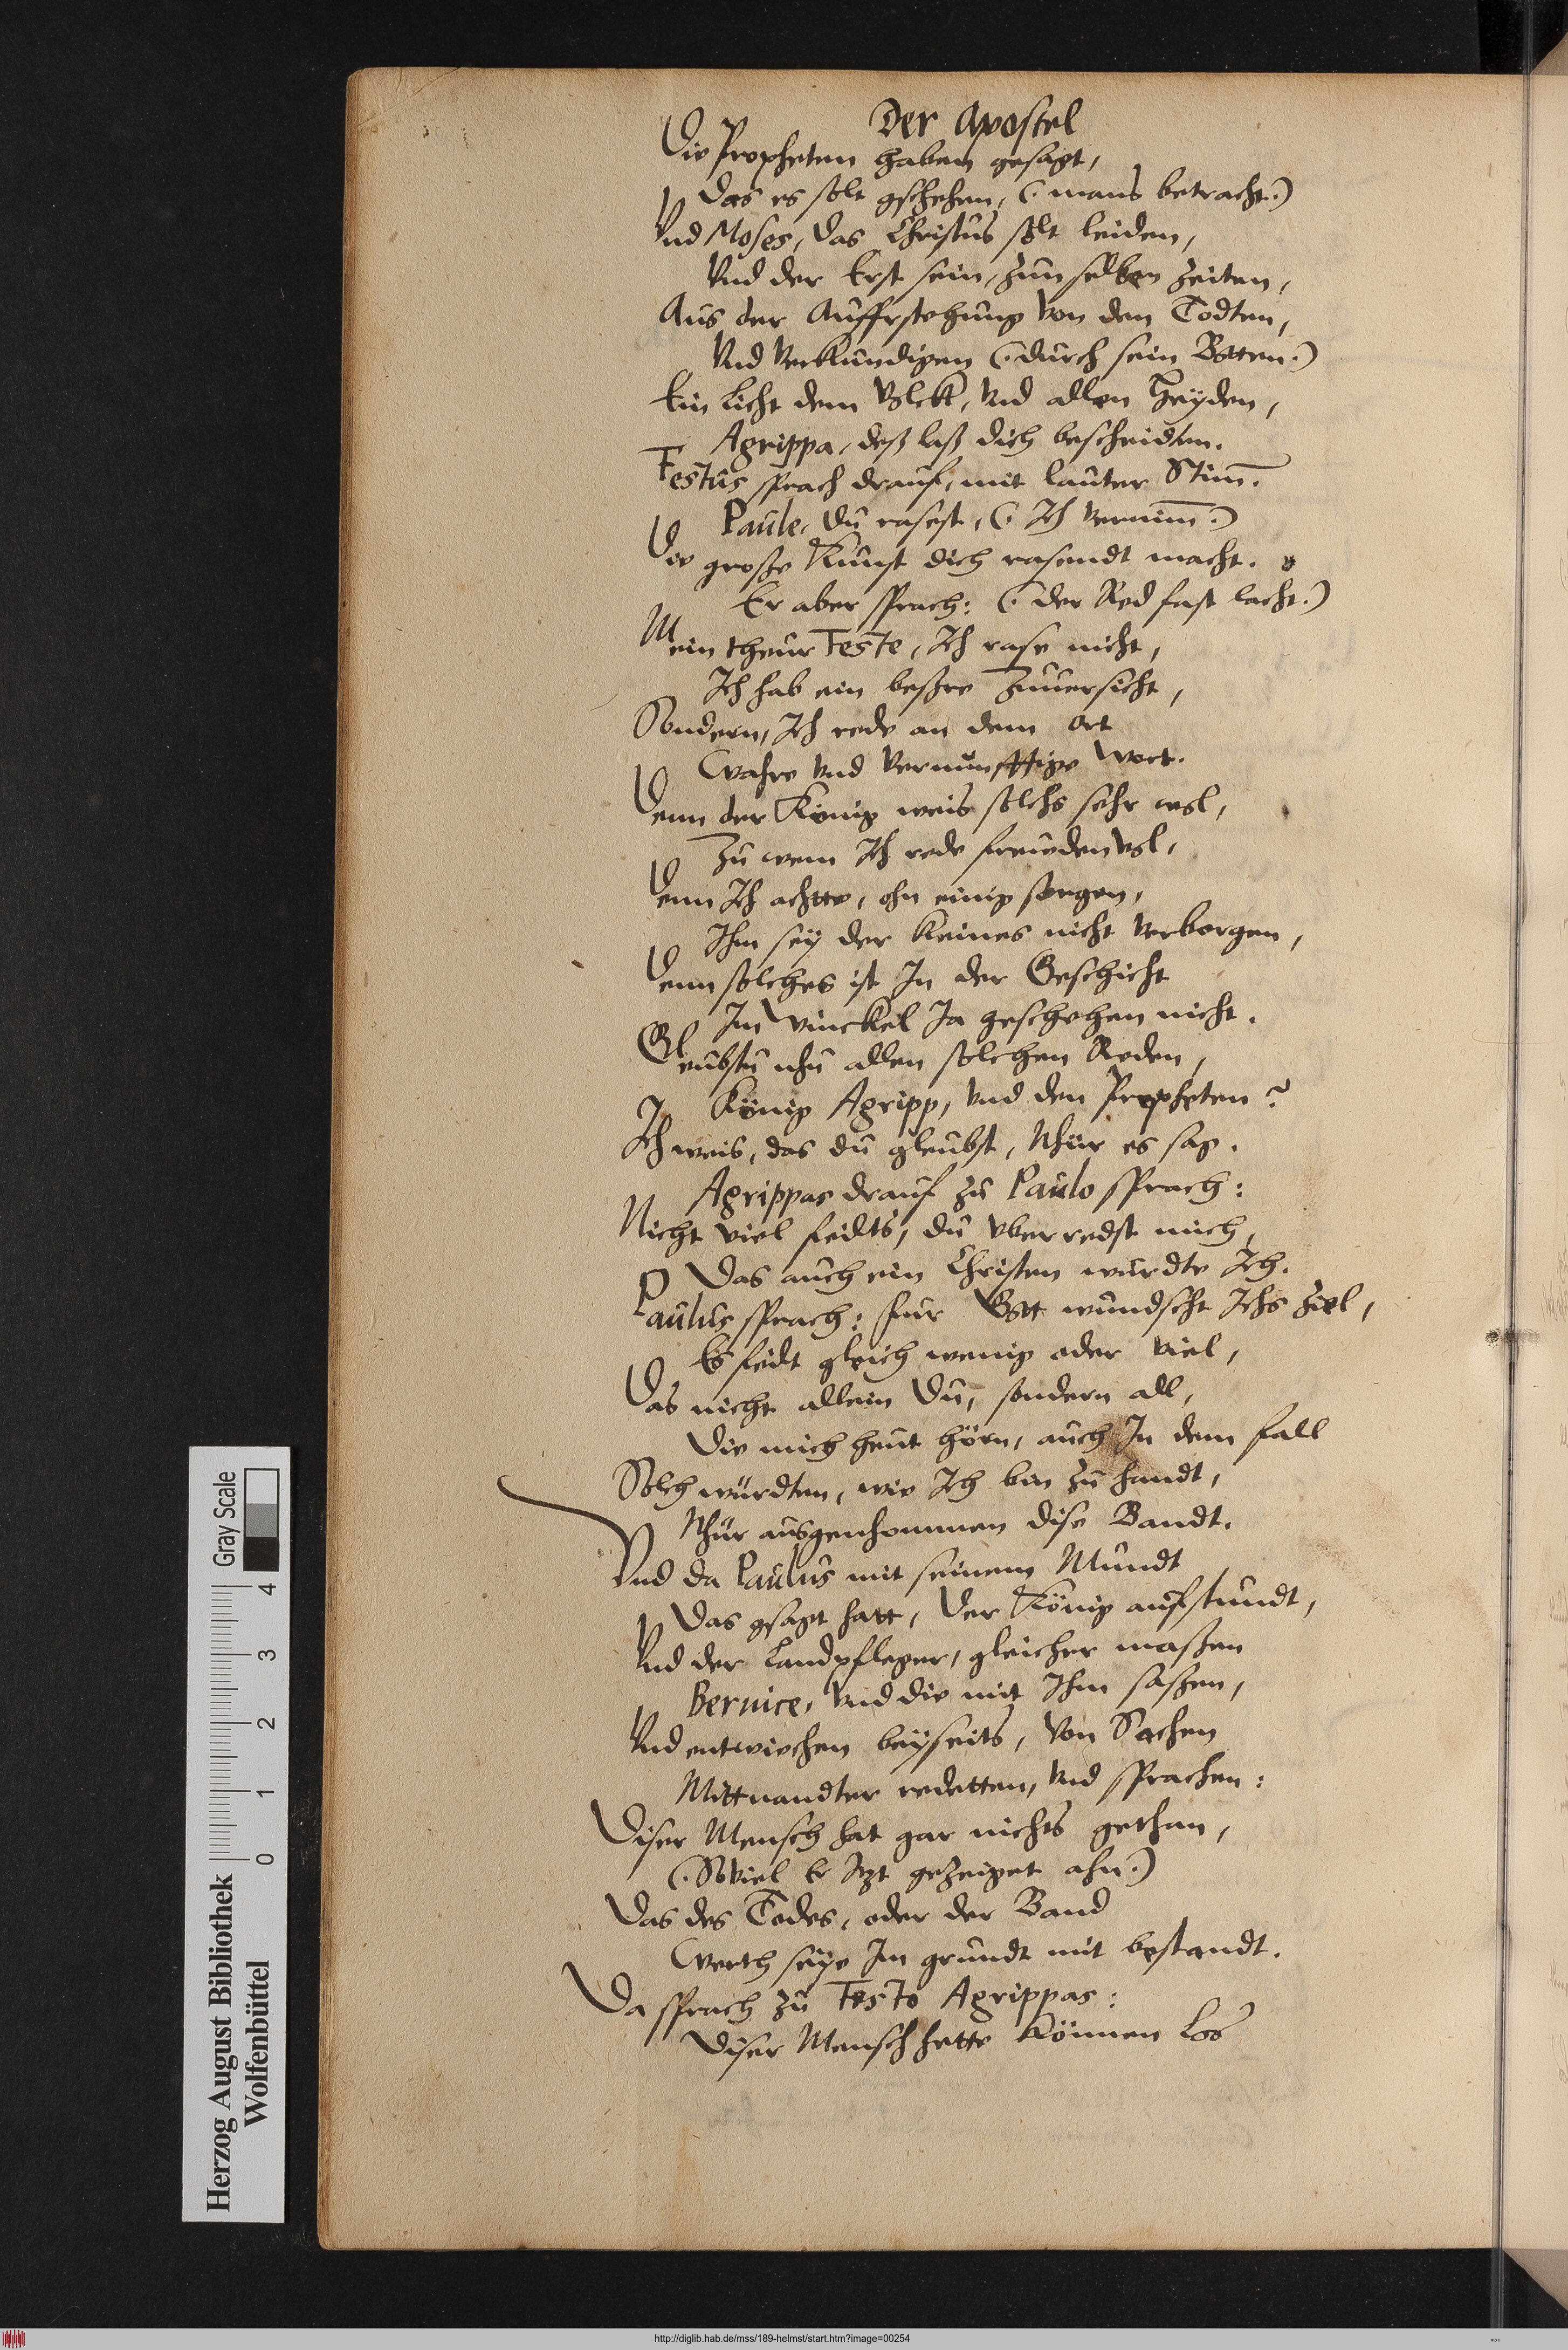 Der Apostel
Die Propheten haben gesagt,
Das es solt gschehen, (. mans betracht.)
Vnd Moses, das Christus solt leiden,
Vnd der Erst sein, zun selben zeiten,
Aus der Aufferstehung von den Todten,
Vnd verkundigen (. durch sein Botten.)
Ein Licht dem Volckh, vnd allen Heyden,
Agrippa, deß laß dich bescheidten.
Festus sprach drauf, mit lauter Stim̄.
Paule, du rasest, (. Ich vernim̄.)
Die große Kunst dich rasendt macht.
Er aber sprach: (. der Red fast lacht.)
Mein theur Feste, Ich rase nicht,
Ich hab ein beßre Zuuersicht,
Sondern, Ich rede an dem ort
Wahre vnd vernunfftige wort.
Denn der König weis solchs sehr wol,
Zu wem Ich rede freudenvol,
Denn Ich achtte, ohn einig sorgen,
Ihm sey der keines nicht verborgen,
Denn solches ist In der Geschicht
Im Winckel Ja geschehen nicht.
Gleubstu nhu allen solchen Reden,
König Agripp, vnd den Propheten?
Ich weis, das du gleubst, Nhur es sag.
Agrippas drauf zu Paulo sprach:
Nicht viel feilts, du vberredst mich,
Das auch ein Christen wurdte Ich.
Paulus sprach: fur Gott wundscht Ichs Ziel,
Es feilt gleich wenig oder viel,
Das nicht allein Du, sondern all,
Die mich heut hörn, auch In dem fall
Solch würdten, wie Ich bin zu handt,
Nhur ausgenhommen dise Bandt.
Vnd da Paulus mit seinem Mundt
Das gsagt hatt, Der König aufstundt,
Vnd der Landpfleger, gleicher maßen
Bernice, vnd die mit Ihm saßen,
Vnd entwichen beyseits, von Sachen
Mittnandter redetten, vnd sprachen:
Diser Mensch hat gar nichts gethan,
(. Soviel Er Itzt gezeiget ahn.)
Das des Todes, oder der Band
Werth seye Im grundt mit bestandt.
Da sprach zu Festo Agrippas:
Diser Mensch hette können Los
Herzog August Bibliothek
Wolfenbüttel
0 1 2 3 4
Gray Scale
http://diglib.hab.de/mss/189-helmst/start.htm?image=00254